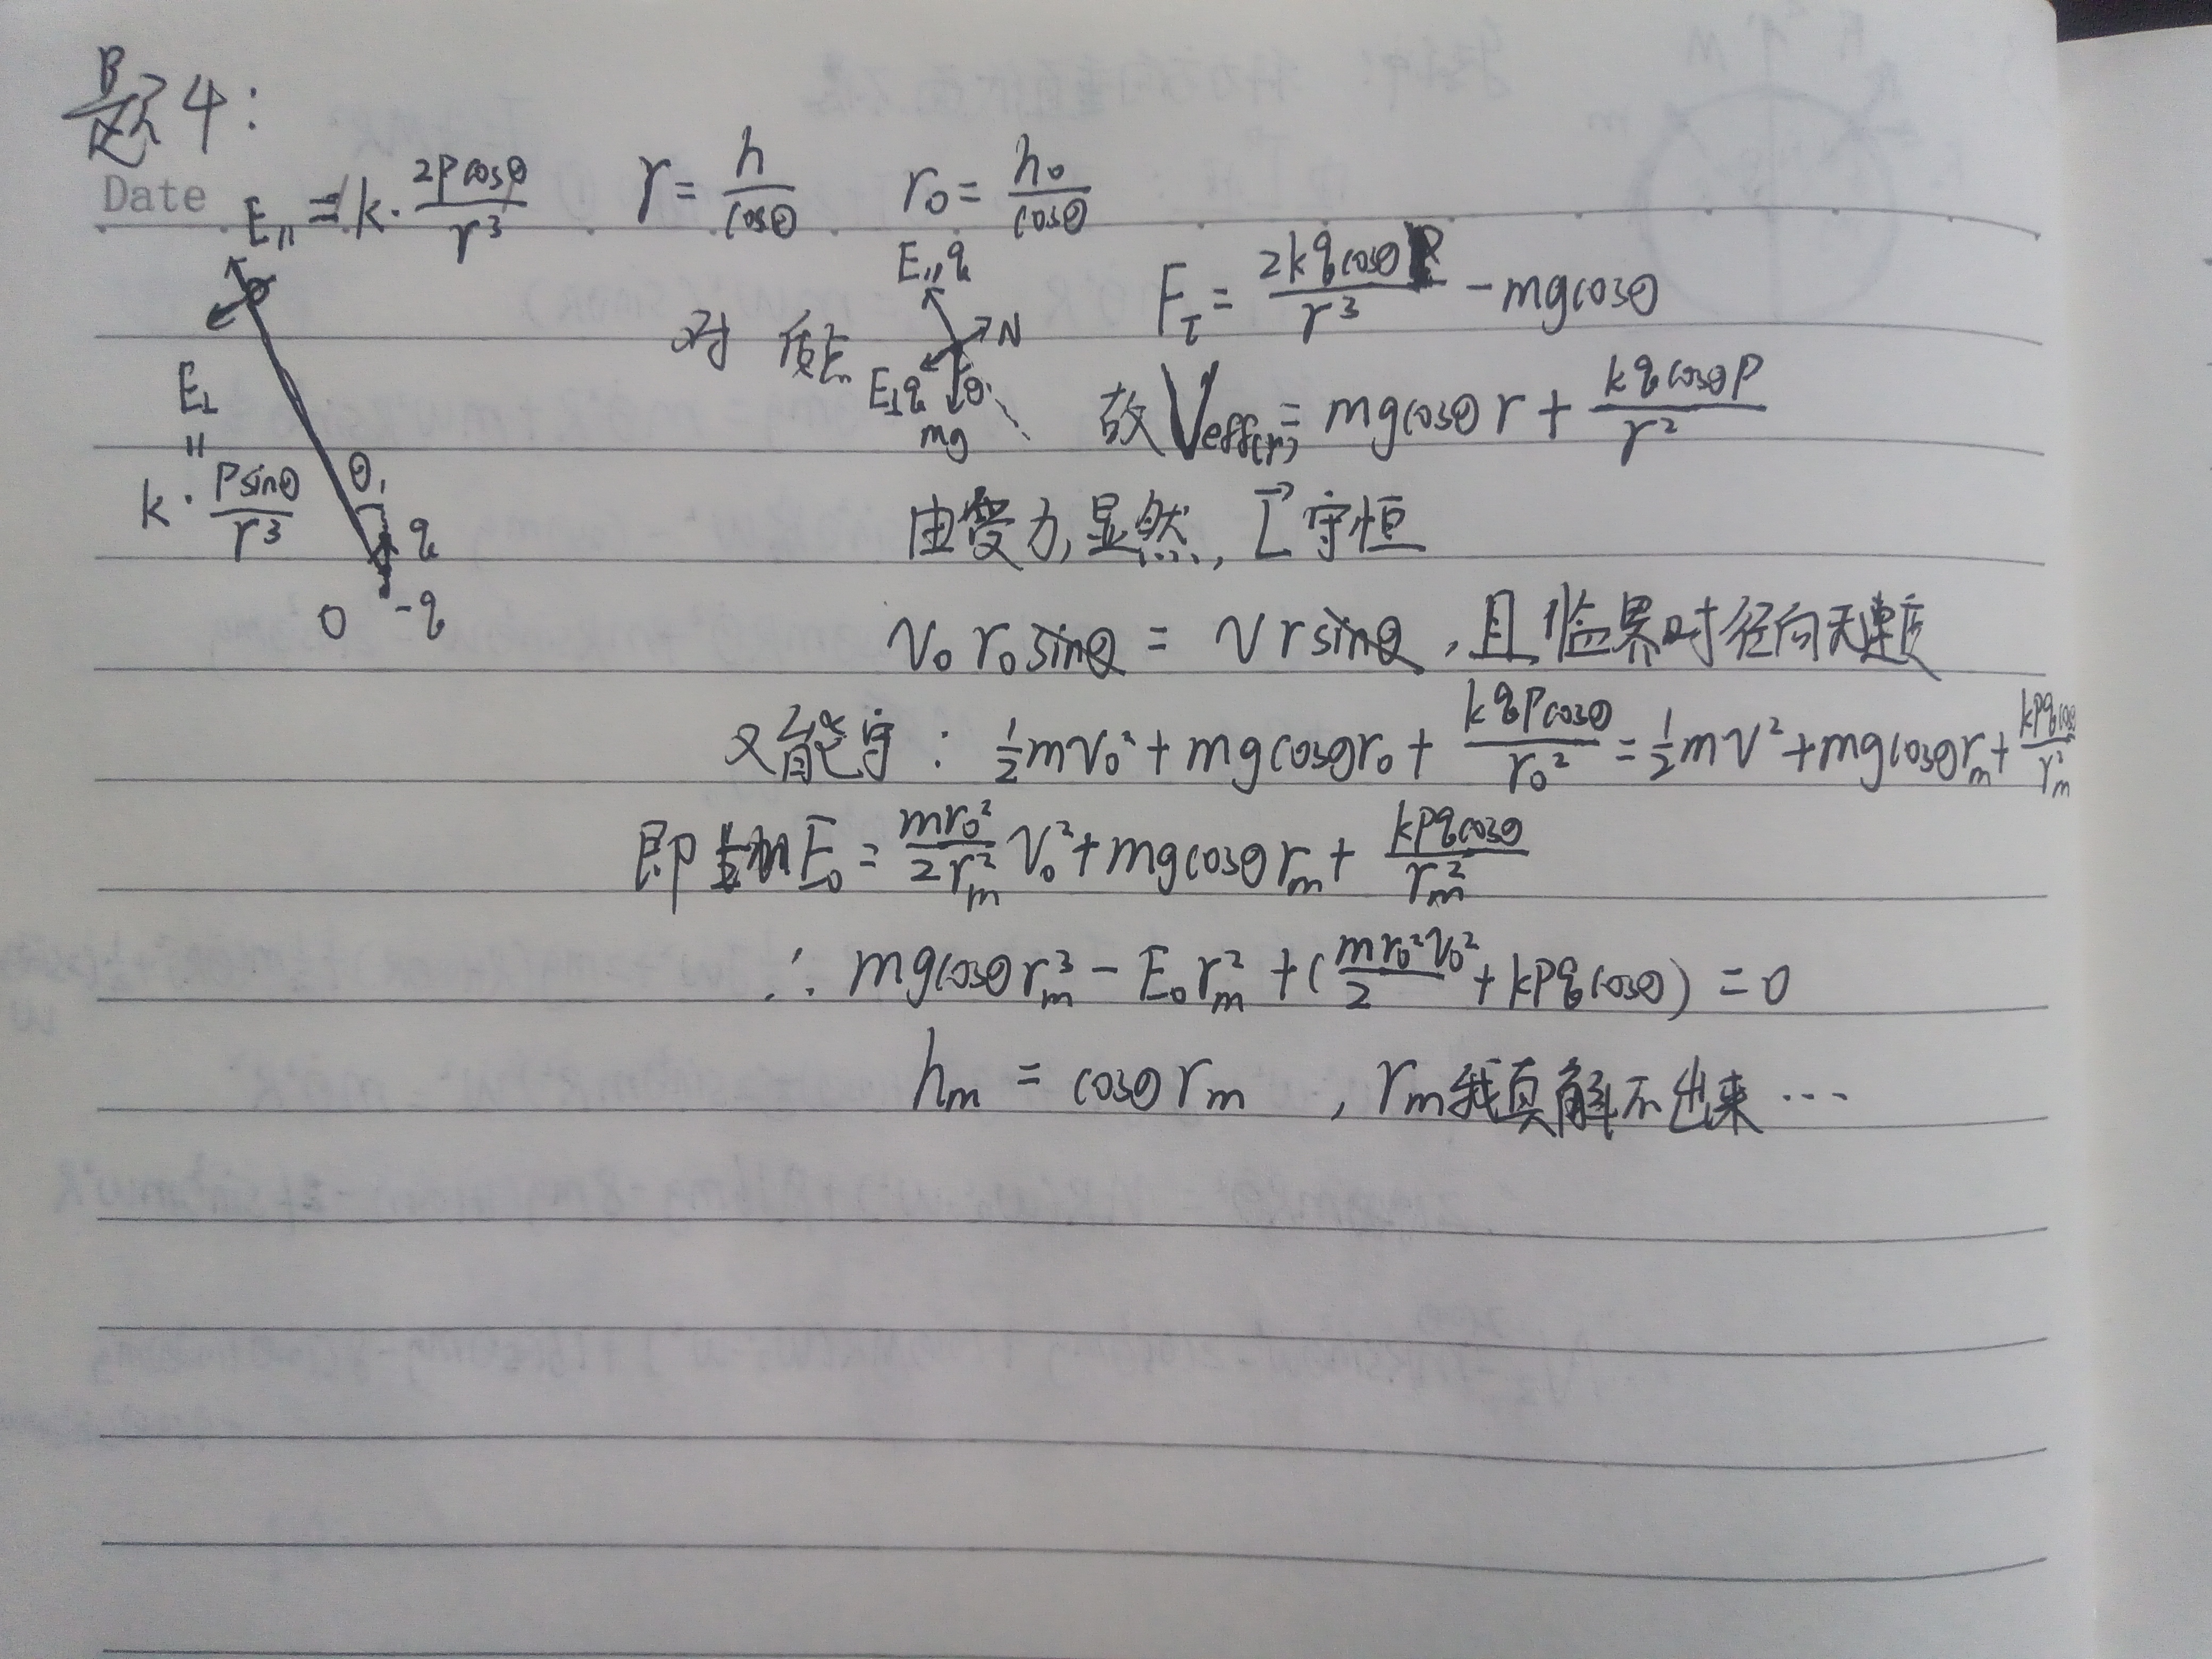 题4:
Date
E∥ = k·\frac{2pcosθ}{r^3}  r = \frac{h}{cosθ}  r_0 = \frac{h_0}{cosθ}
E∥q
对 质点  N  F_τ = \frac{2kqcosθP}{r^3} - mgcosθ
E⊥q  θ  mg
E⊥ = k·\frac{Psinθ}{r^3}
θ
q
O  -q
故 V_{eff(r)} = mgcosθr + \frac{kqcosθP}{r^2}
由受力,显然, \vec{L} 守恒
v_0 r_0 sinθ = v r sinθ ,且临界时径向无速度
又能守: \frac{1}{2}mv_0^2 + mgcosθr_0 + \frac{kqPcosθ}{r_0^2} = \frac{1}{2}mv^2 + mgcosθr_m + \frac{kPqcosθ}{r_m^2}
即 E_0 = \frac{mr_0^2}{2r_m^2}v_0^2 + mgcosθr_m + \frac{kPqcosθ}{r_m^2}
∴ mgcosθr_m^3 - E_0r_m^2 + (\frac{mr_0^2v_0^2}{2} + kPqcosθ) = 0
h_m = cosθr_m ,r_m我真解不出来…